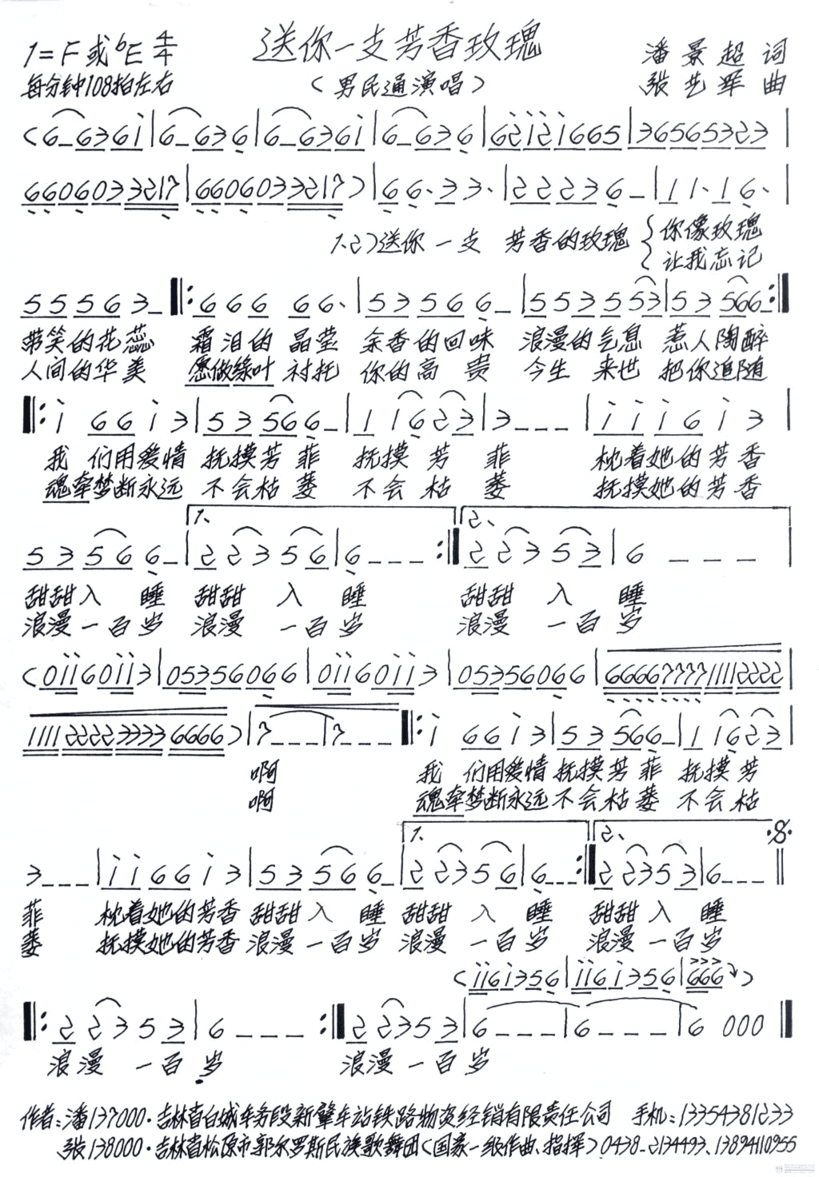 送你一支芳香玫瑰
1=F或bE 4/4
每分钟108拍左右
（男民通演唱）
潘景超 词
张艺军 曲
(6_6361|6_636|6_6361|6_636|62121665|36565323|
6606033217|6606033217)|66、33、|22236_|11、16、|
1.2)送你一支 芳香的玫瑰{你像玫瑰
让我忘记
55563_‖:666 66、|53566_|553553|53566_:‖
带笑的花蕊 霜泪的晶莹 余香的回味 浪漫的气息 惹人陶醉
人间的华美 愿做绿叶衬托 你的高贵 今生来世 把你追随
‖:i 66i3|53566_|11623|3___|iii6i3|
我们用爱情 抚摸芳菲 抚摸芳菲 枕着她的芳香
魂牵梦断永远 不会枯萎 不会枯萎 抚摸她的芳香
1、 2、
53566_|22356|6___:‖22353|6 _ _ _|
甜甜入睡 甜甜入睡 甜甜入睡
浪漫一百岁 浪漫一百岁 浪漫一百岁
(0ii60ii3|05356066|0ii60ii3|05356066|6666777711112222|
1111222233336666)|3___|3___‖:i 66i3|53566_|11623|
啊 我们用爱情 抚摸芳菲 抚摸芳
啊 魂牵梦断永远 不会枯萎 不会枯
1、 2、
3___|ii66i3|53566_|22356|6___:‖22353|6___‖
菲 枕着她的芳香 甜甜入睡 甜甜入睡 甜甜入睡
萎 抚摸她的芳香 浪漫一百岁 浪漫一百岁 浪漫一百岁
(ii6i356|ii6i356|666)
‖:22353|6___:‖22353|6___|6___|6000‖
浪漫一百岁 浪漫一百岁
作者:潘137000·吉林省白城车务段新肇车站铁路物资经销有限责任公司 手机:13354381233
张138000·吉林省松原市郭尔罗斯民族歌舞团(国家一级作曲、指挥)0438-2134493、13894110955